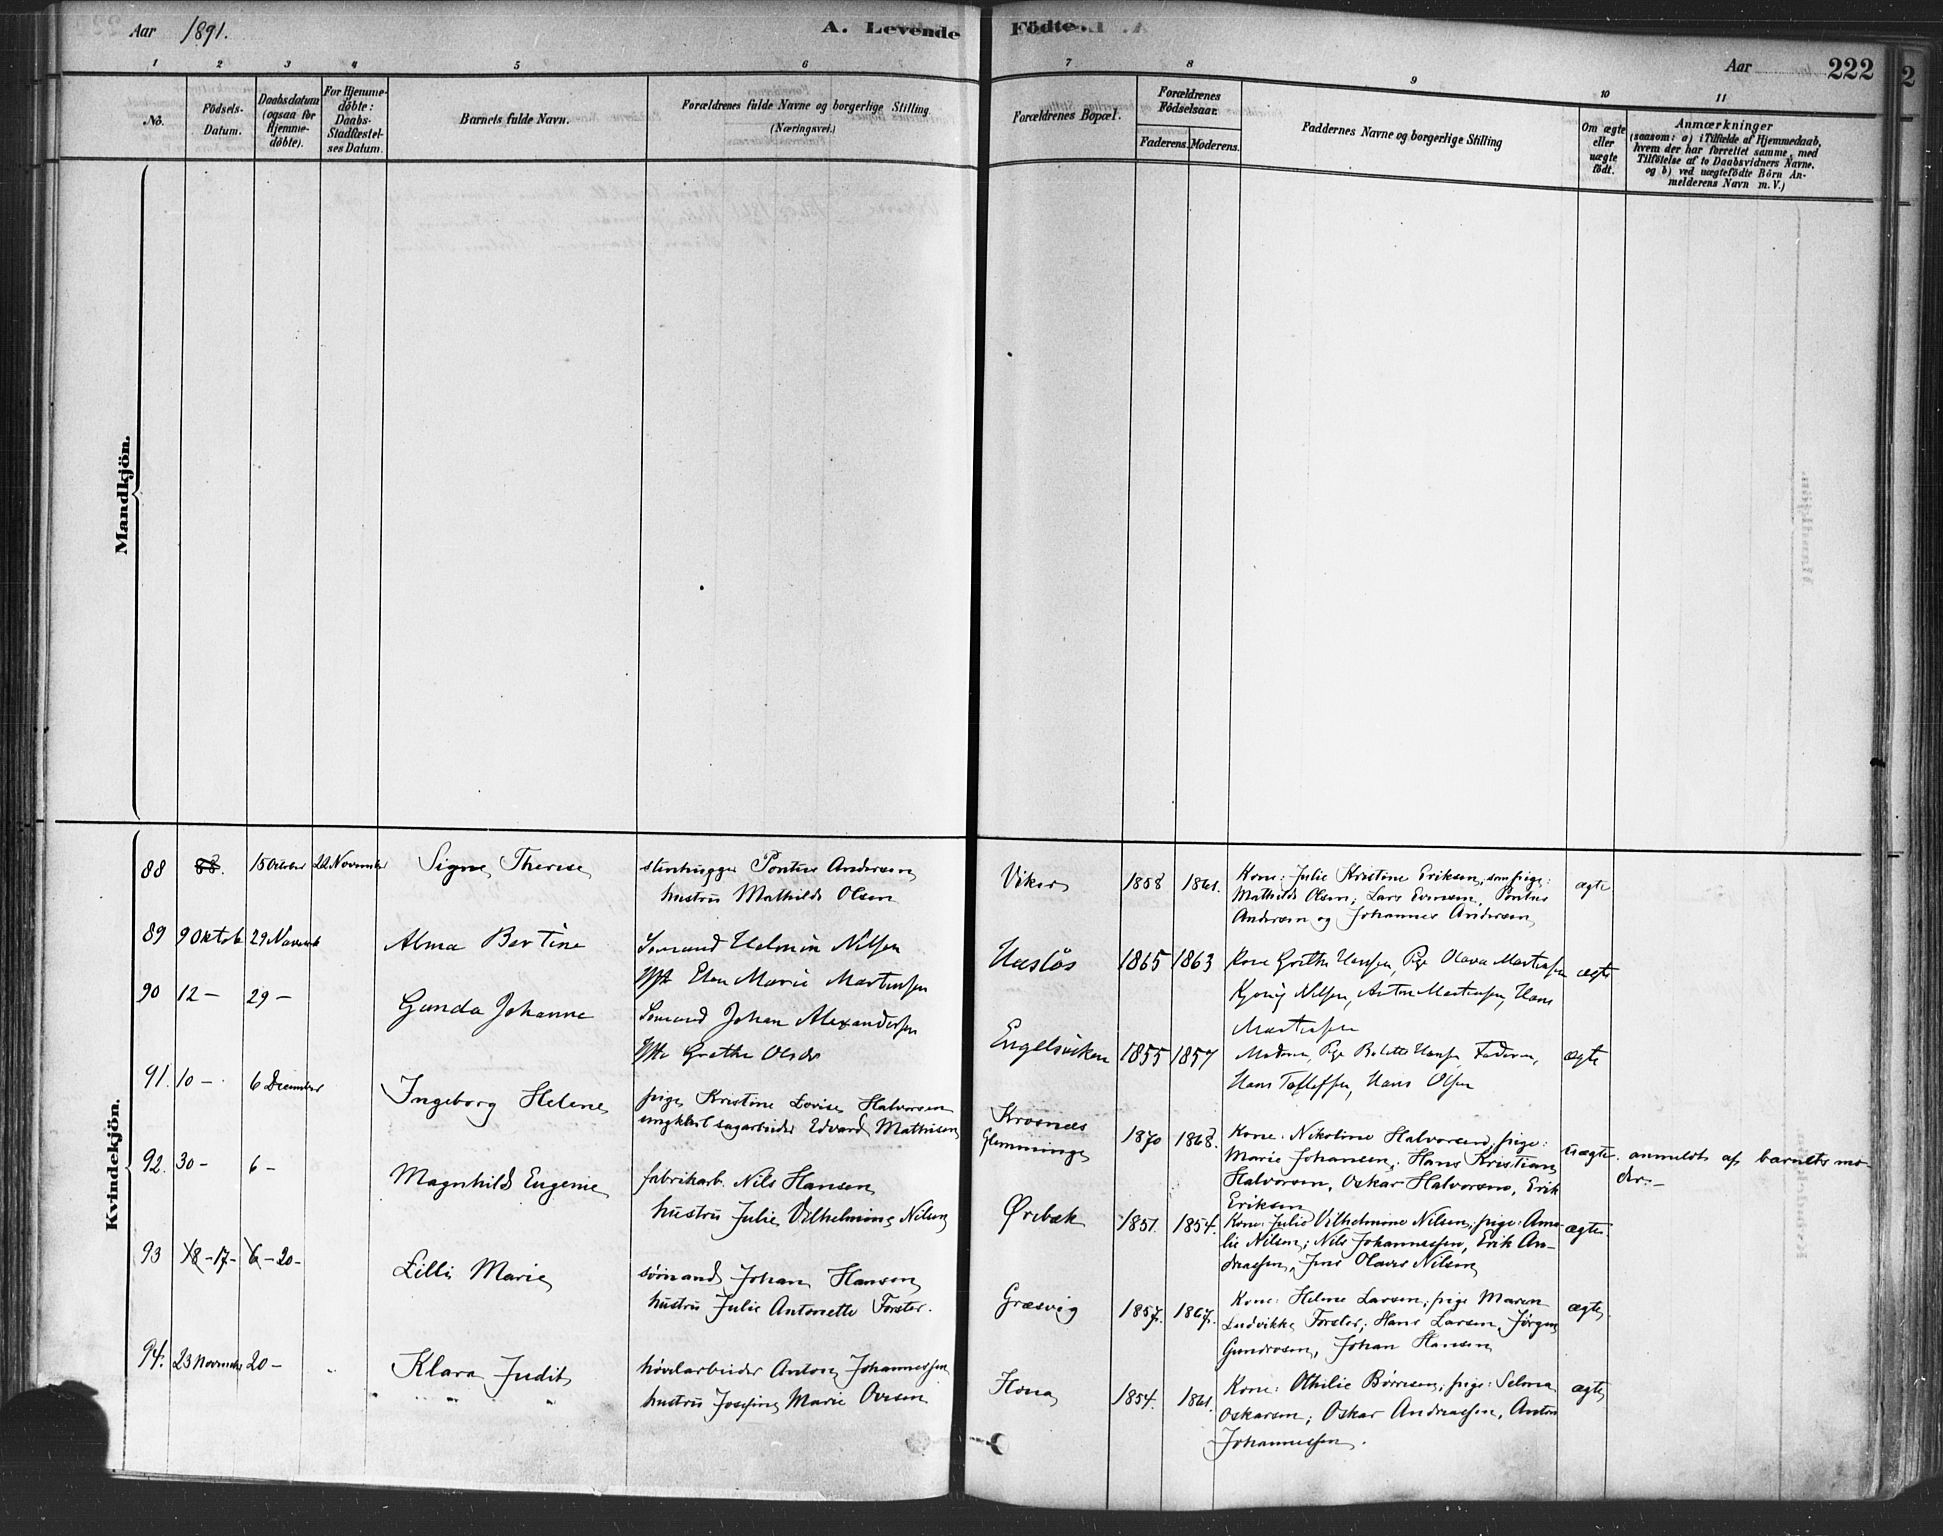 Aar 1891.
A. Levende Födte.
Aar 222
1 2 3 4 5 6 7 8 9 10 11
No.
Födsels-
Datum.
Daabsdatum
(ogsaa for
Hjemme-
döbte).
For Hjemme-
döbte:
Daabs-
Stadfæstel-
ses Datum.
Barnets fulde Navn.
Forældrenes fulde Navne og borgerlige Stilling
(Næringsvei.)
Forældrenes Bopæl.
Forældrenes
Födselsaar.
Faderens. Moderens.
Faddernes Navne og borgerlige Stilling
Om ægte
eller
uægte
födt.
Anmærkninger
(saasom: a) i Tilfælde af Hjemmedaab,
hvem der har forrettet samme, med
Tilföielse af to Daabsvidners Navne.
og b) ved uægtefödte Börn An-
melderens Navn m. V.)
Mandkjön.
Kvindekjön.
88 15 October 22 November
Signe Therese
stenhugger Pontus Andersen
hustru Mathilde Olsen
Viker 1858 1861.
Kone: Julie Kristine Eriksen, pige:
Mathilde Olsen; Lars Evensen, Pontus
Andersen og Johannes Andersen
ægte
89 9 Oktob 29 Novemb
Alma Bertine
Sømand Helmin Nilsen
Hst Elen Marie Martinsen
Hasløs 1865 1863
Kone Grethe Hansen, Pige Olava Martinsen
Nilsen, Anton Martinsen, Hans
Martinsen
ægte
90 12 - 29 -
Gunda Johanne
Sømand Johan Alexandersen
Hst Grethe Olsdr
Engelsviken 1855 1857
Moderen, Pige Bolette Hansen, Faderen,
Hans Olsen
ægte
91. 10 - 6 December
Ingeborg Helene
pige Kristine Lovise Halvorsen
ungkarl sagarbeider Edvard Mathisen
Krosnæs
Glemminge
1870 1868.
Kone: Nikoline Halvorsen; pige:
Marie Johansen; Hans Kristian
Halvorsen, Oskar Halvorsen, Erik
Eriksen
uægte. anmeldt af barnets mo-
der.-
92. 30 - 6 -
Magnhild Eugenie
fabrikarb. Nils Hansen
hustru Julie Vilhelmine Nilsen
Ørebæk 1851. 1854.
Kone: Julie Vilhelmine Nilsen; pige: Ama-
lie Nilsen; Nils Johannessen, Erik An-
dreassen, Jens Olaves Nilsen
ægte
93 18 - 17 - 6 - 20 -
Lilli Marie
sømand Johan Hansen
hustru Julie Antonette Forster.
Græsvig 1857. 1867.
Kone: Helene Larsen; pige Maren
Ludvikke Forster; Hans Larsen, Jørgen
Gundersen, Johan Hansen
ægte
94. 23 November 20 -
Klara Judit
høvlarbeider Anton Johannessen
hustru Josefine Marie Ovesen
Hona 1854. 1861.
Kone: Othilie Børresen; pige: Selma
Oskarsen; Oskar Andreassen, Anton
Johannessen.
ægte